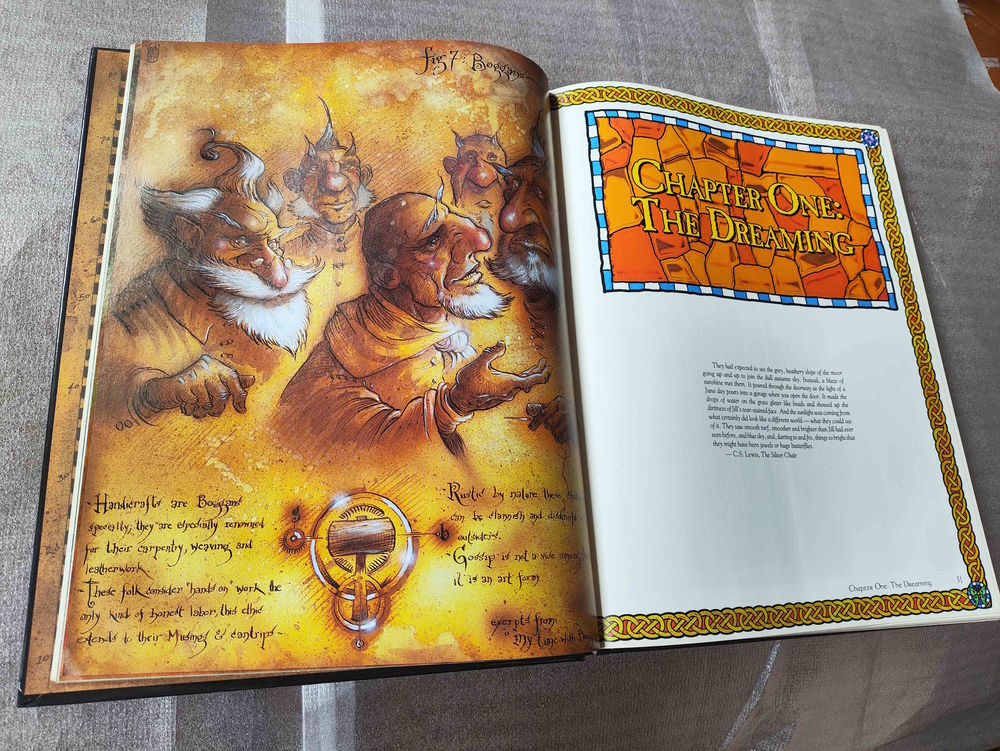 fig 7: Boggans
-Handicrafts are Boggans
specialty; they are especially renowned
for their carpentry, weaving and
leatherwork.
-These folk consider "hands on" work the
only kind of honest labor, this ethic
extends to their Musings & cantrips-
a
b
-Rustic by nature, these
can be clannish and
outsiders.
-Gossip is not a vice among
it is an art form.
excerpts from
"My time with
Chapter One:
The Dreaming
They had expected to see the grey, heathery slope of the moor
going up and up to join the dull autumn sky. Instead, a blaze of
sunshine met them. It poured through the doorway as the light of a
June day pours into a garage when you open the door. It made the
drops of water on the grass glitter like beads and showed up the
dirtiness of Jill's tear-stained face. And the sunlight was coming from
what certainly did look like a different world — what they could see
of it. They saw smooth turf, smoother and brighter than Jill had ever
seen before, and blue sky, and, darting to and fro, things so bright that
they might have been jewels or huge butterflies.
— C.S. Lewis, The Silver Chair
Chapter One: The Dreaming 31